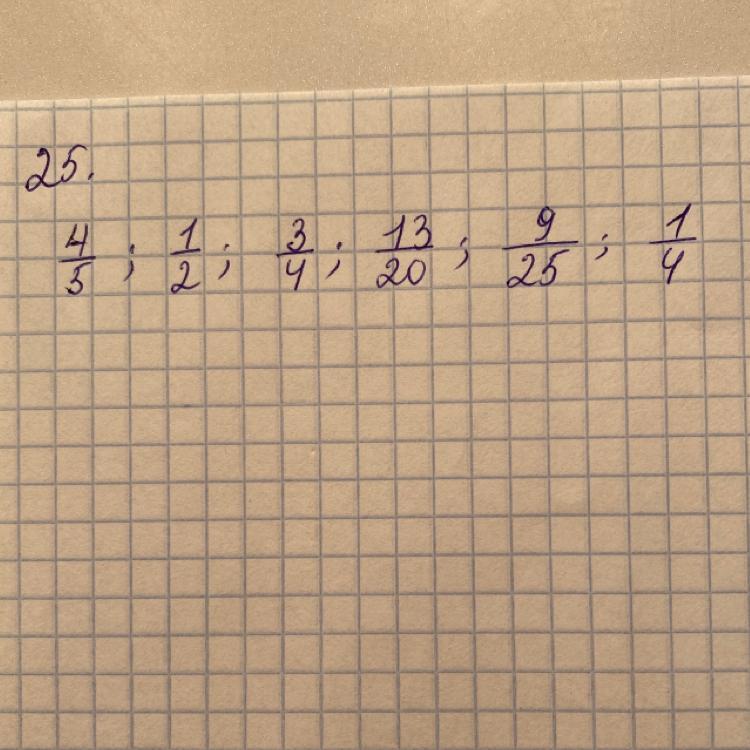 25.
4/5 ; 1/2 ; 3/4 ; 13/20 ; 9/25 ; 1/4